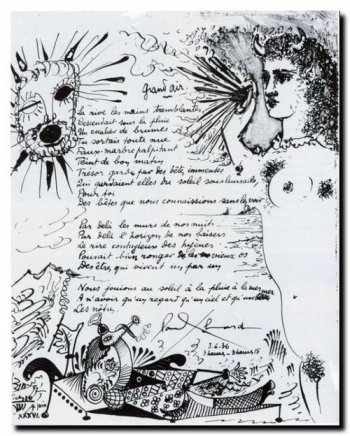 Grand air
La rive les mains tremblantes
Descendait sous la pluie
Un escalier de brumes
Tu sortais toute nue
Faux marbre palpitant
Teint de bon matin
Trésor gardé par des bêtes immenses
Qui gardaient elles du soleil sous leurs ailes
Pour toi
Des bêtes que nous connaissions sans les voir
Par delà les murs de nos nuits
Par delà l'horizon de nos baisers
Le rire contagieux des hyènes
Pouvait bien ronger les vieux os
Des êtres qui vivent un par un
Nous jouions au soleil à la pluie à la mer
A n'avoir qu'un regard qu'un ciel et qu'une mer
Les nôtres
Paul Eluard
3.6.36
3 heures - 3 heures 15
XXXVI.